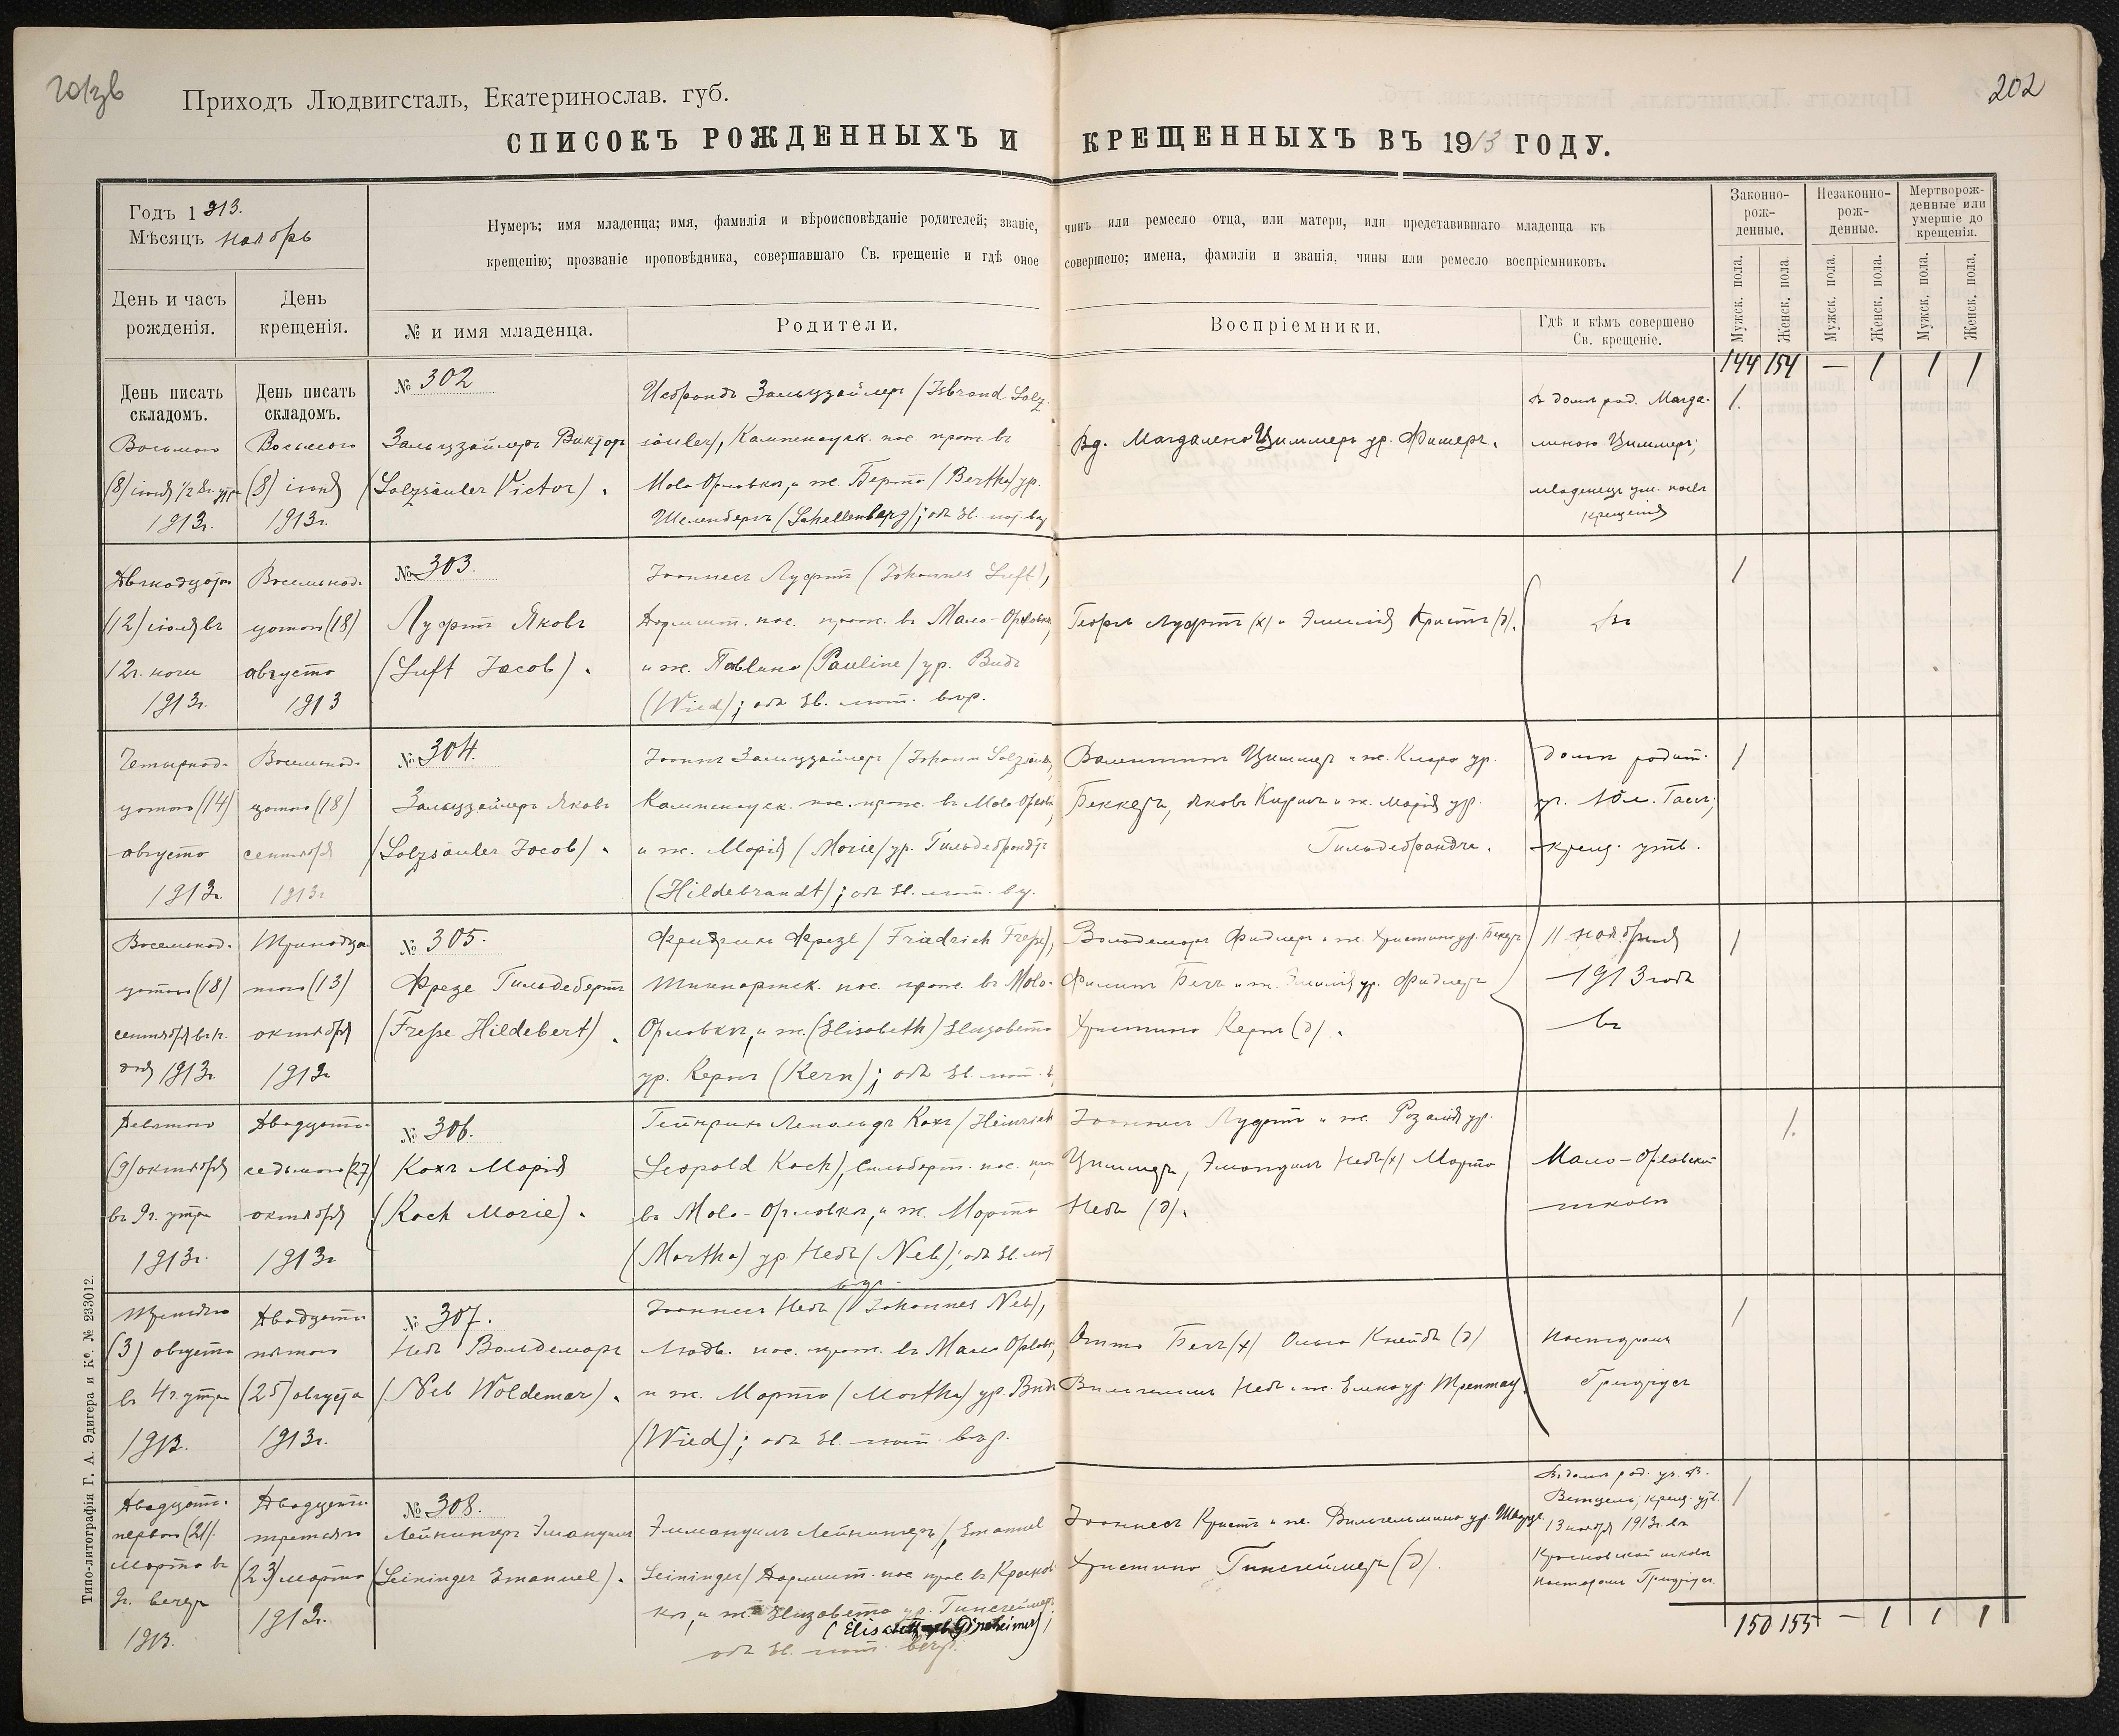 201 зв
202
Приходъ Людвигсталь, Екатеринослав. губ.
СПИСОКЪ РОЖДЕННЫХЪ И КРЕЩЕННЫХЪ ВЪ 1913 ГОДУ.
Годъ 1913.
Мѣсяцъ ноябрь
День и часъ рожденія.
День крещенія.
Нумеръ; имя младенца; имя, фамилія и вѣроисповѣданіе родителей; званіе, чинъ или ремесло отца, или матери, или представившаго младенца къ
крещенію; прозваніе проповѣдника, совершавшаго Св. крещеніе и гдѣ оное совершено; имена, фамиліи и званія, чины или ремесло воспріемниковъ.
№ и имя младенца.
Родители.
Воспріемники.
Гдѣ и кѣмъ совершено
Св. крещеніе.
Законно-
рож-
денные.
Незаконно-
рож-
денные.
Мертворож-
денные или
умершіе до
крещенія.
Мужск. пола.
Женск. пола.
Мужск. пола.
Женск. пола.
Мужск. пола.
Женск. пола.
144 154 — 1 1 1
День писать
складомъ.
Восьмого
(8) іюня 1/2 8г. утра
1913г.
День писать
складомъ.
Восьмого
(8) іюня
1913г.
№ 302
Зальцзайлеръ Викторъ
(Salzsäuler Victor).
Исбрандъ Зальцзайлеръ (Isbrand Salz-
säuler), Кампенауск. пос. прож. въ
Мало Орловкѣ, и ж. Берта (Bertha) ур.
Шеленбергъ (Schellenberg); оба ев. лют. вѣр
Вд. Магдалена Циммеръ ур. Фишеръ.
Въ домѣ род. Магда-
линою Циммеръ;
младенецъ ум. послѣ
крещенія
1.
Двѣнадцатаго
(12) іюля въ
12г. ночи
1913г.
Восемьнад-
цатаго (18)
августа
1913
№ 303.
Луфтъ Яковъ
(Luft Jacob).
Іоаннесъ Луфтъ (Johannes Luft),
Дармшт. пос. прож. въ Мало-Орловкѣ,
и ж. Павлина (Pauline) ур. Видъ
(Wied); оба ев. лют. вѣр.
Георгъ Луфтъ (х) и Эмилія Кристъ (д).
Въ
1
Четырнад-
цатаго (14)
августа
1913г.
Восемьнад-
цатаго (18)
сентября
1913г
№ 304.
Зальцзайлеръ Яковъ
(Salzsäuler Jacob).
Іоаннъ Зальцзайлеръ (Johann Salzsäuler),
Кампенауск. пос. прож. въ Мало Орловкѣ,
и ж. Марія (Marie) ур. Гильдебрандтъ
(Hildebrandt); оба ев. лют. вѣр.
Валентинъ Циммеръ и ж. Клара ур.
Беккеръ, Яковъ Киршъ и ж. Марія ур.
Гильдебрандтъ.
домѣ родит.
крещ. утв.
1
Восемьнад-
цатаго (18)
сентября въ 1г.
дня 1913г.
Тринадца-
таго (13)
октября
1913г
№ 305.
Фрезе Гильдебертъ
(Frese Hildebert).
Фридрихъ Фрезе (Friedrich Frese),
прож. въ Мало-
Орловкѣ, и ж. (Elisabeth) Елизавета
ур. Кернъ (Kern); оба ев. лют. в
Вольдемаръ Фидлеръ и ж. Христина ур. Бехъ
Филиппъ Бехъ и ж. Эмилія ур. Фидлеръ
Христина Кернъ (д).
11 ноября
1913 года
въ
1
Девятаго
(9) октября
въ 9г. утра
1913г.
Двадцать
седьмого (27)
октября
1913г
№ 306.
Кохъ Марія
(Koch Marie).
Гейнрихъ Леопольдъ Кохъ (Heinrich
Leopold Koch), пос. прож
въ Мало-Орловкѣ, и ж. Марта
(Martha) ур. Небъ (Neb); оба ев. лют
вѣр.
Іоаннесъ Луфтъ и ж. Розалія ур.
Циммеръ, Эмануилъ Небъ (х) Марта
Небъ (д).
Мало-Орловской
школѣ
1.
Третьяго
(3) августа
въ 4г. утра
1913.
Двадцать
пятаго
(25) августа
1913г.
№ 307.
Небъ Вольдемаръ
(Neb Woldemar).
Іоаннесъ Небъ (Johannes Neb),
Людв. пос. прож. въ Мало Орловкѣ,
и ж. Марта (Martha) ур. Видъ
(Wied); оба ев. лют. вѣр.
Отто Бехъ (х) Ольга Кнейбъ (д)
Вильгельмъ Небъ и ж. Елена ур. Трептау.
Пасторомъ
1
Двадцать
перваго (21)
Марта въ
9г. вечера
1913.
Двадцать
третьяго
(23) марта
1913г.
№ 308.
Лейнингеръ Эмануилъ
(Leininger Emanuel).
Эммануилъ Лейнингеръ (Emanuel
Leininger) Дармшт. пос. прож. въ Краснов-
кѣ, и ж. Елизавета ур. Гинсгеймеръ
(Elisabeth Ginsheimer);
оба ев. лют. вѣр.
Іоаннесъ Кристъ и ж. Вильгельмина ур. Шварцъ
Христина Гинсгеймеръ (д).
Въ домѣ род. уч. В.
Ветцель; крещ. утв.
13 ноября 1913г. въ
Красновской школѣ
пасторомъ
1
150 155 — 1 1 1
Типо-литографія Г. А. Эдигера и Кº. № 233012.